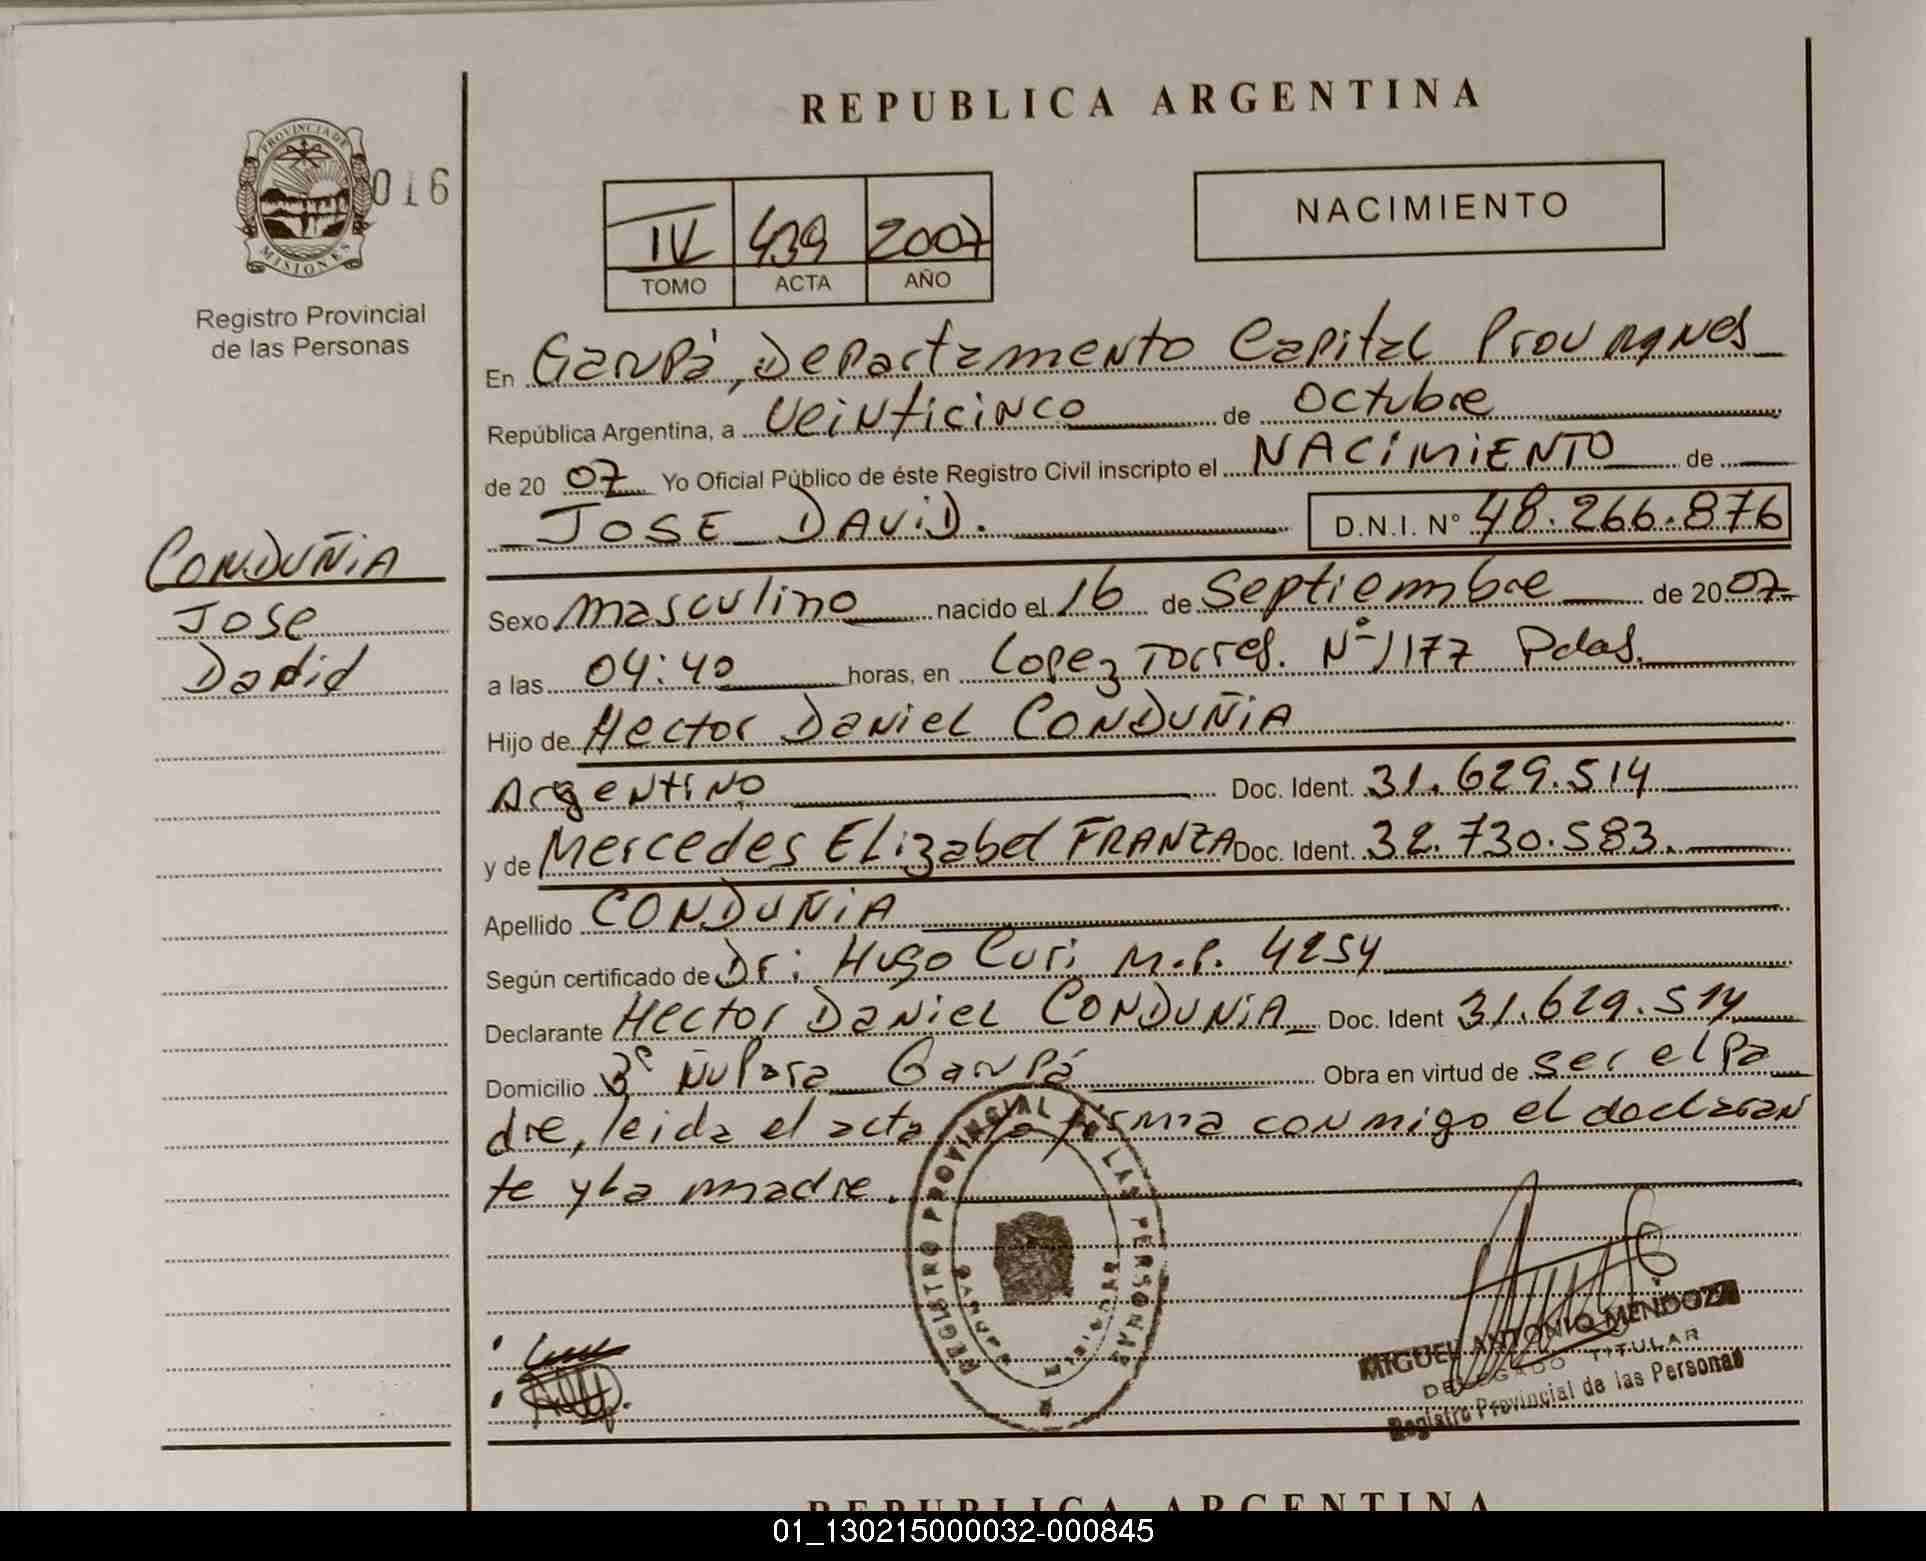 REPUBLICA ARGENTINA
PROVINCIA DE
MISIONES
016
Registro Provincial
de las Personas
IV 439 2007
TOMO ACTA AÑO
NACIMIENTO
En Garupá, Departamento Capital Prov
República Argentina, a Veinticinco de Octubre
de 20 07 Yo Oficial Público de éste Registro Civil inscripto el NACIMIENTO de
JOSE DAVID. D.N.I. N° 48.266.876
CONDUÑIA
Jose
David
Sexo masculino nacido el 16 de Septiembre de 20 07
a las 04:40 horas, en Lopez Torres. N° 1177 Pdas.
Hijo de Hector Daniel CONDUÑIA
Argentino Doc. Ident. 31.629.514
y de Mercedes Elizabet FRANZA Doc. Ident. 32.730.583.
Apellido CONDUÑIA
Según certificado de Dr: Hugo Curi M.P. 4254
Declarante Hector Daniel CONDUÑIA Doc. Ident 31.629.514
Domicilio Bº Ñu Pora Garupá Obra en virtud de ser el Pa
dre, leida el acta la firma conmigo el declaran
te y la madre.
REGISTRO PROVINCIAL DE LAS PERSONAS
MIGUEL ANTONIO MENDOZA
DELEGADO TITULAR
Registro Provincial de las Personas
REPUBLICA ARGENTINA
01_130215000032-000845